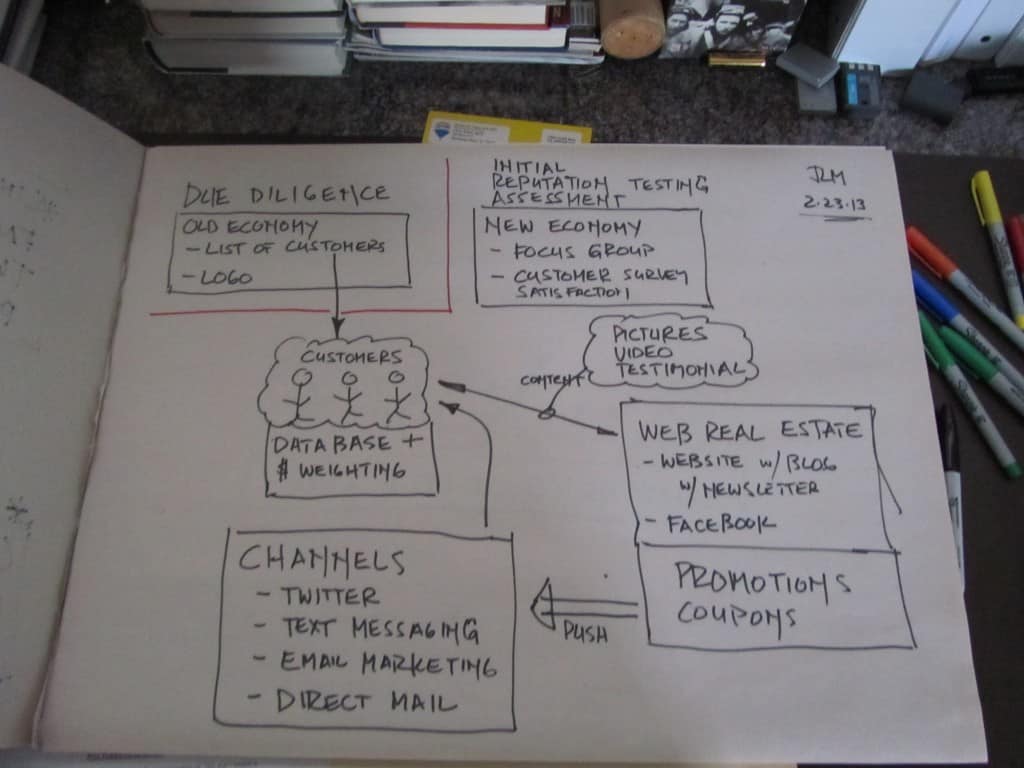 DUE DILIGENCE
OLD ECONOMY
- LIST OF CUSTOMERS
- LOGO
INITIAL
REPUTATION TESTING
ASSESSMENT
NEW ECONOMY
- FOCUS GROUP
- CUSTOMER SURVEY
SATISFACTION
JLM
2.23.13
CUSTOMERS
DATABASE +
$ WEIGHTING
CONTENT
PICTURES
VIDEO
TESTIMONIAL
WEB REAL ESTATE
- WEBSITE W/ BLOG
W/ NEWSLETTER
- FACEBOOK
PROMOTIONS
COUPONS
PUSH
CHANNELS
- TWITTER
- TEXT MESSAGING
- EMAIL MARKETING
- DIRECT MAIL